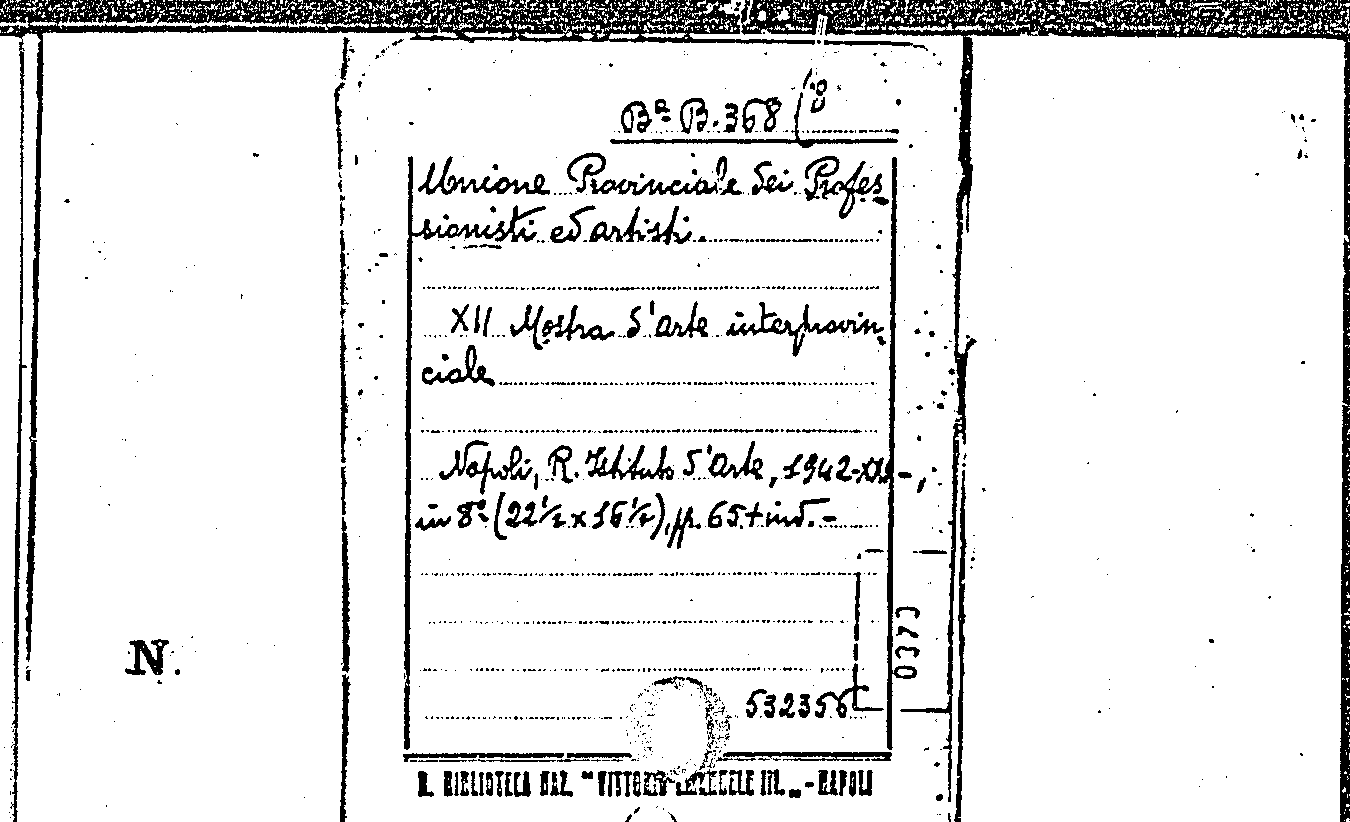 Bª B.368 (8
Unione Provinciale dei Profes
sionisti ed artisti.
XII Mostra d'arte interprovin
ciale
Napoli, R. Istituto d'Arte, 1942-XX-,
in 8º (22½ x 16½), pp. 65+ind.-
N.
532356
R. BIBLIOTECA NAZ. "VITTORIO EMANUELE III." - NAPOLI